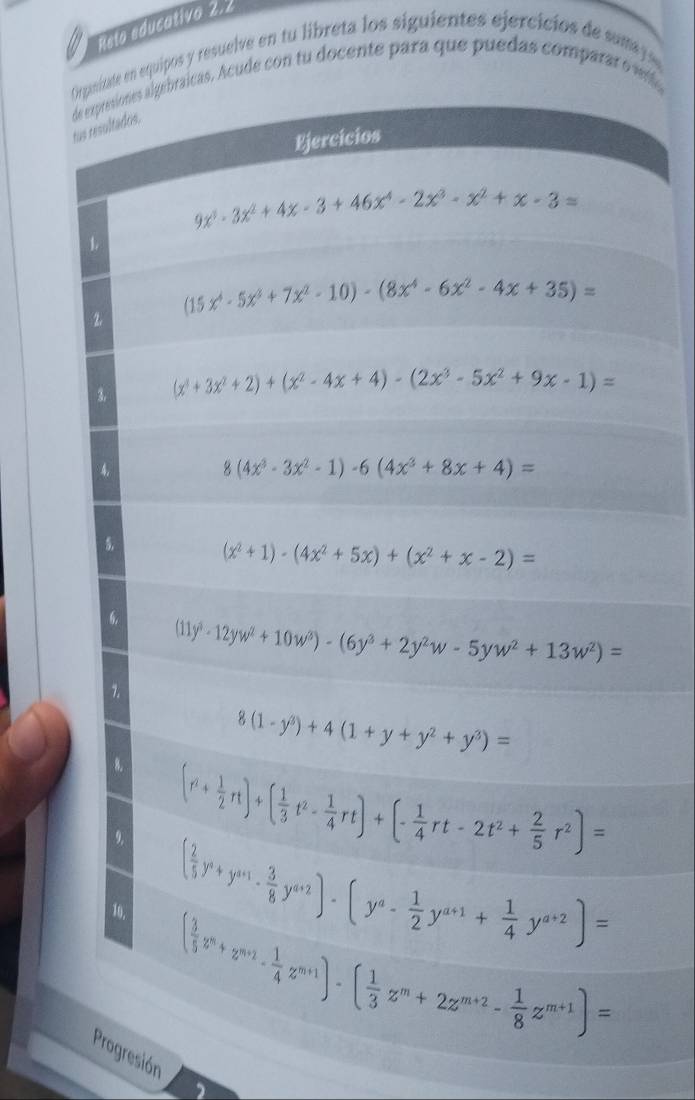 Reto educativo 2.2
Organízate en equipos y resuelve en tu libreta los siguientes ejercicios de suma y
de expresiones algebraicas. Acude con tu docente para que puedas comparar o
tus resultados.
Ejercicios
1. 9x³ - 3x² + 4x - 3 + 46x⁴ - 2x³ - x² + x - 3 =
2. (15x⁴ - 5x³ + 7x² - 10) - (8x⁴ - 6x² - 4x + 35) =
3. (x³ + 3x² + 2) + (x² - 4x + 4) - (2x³ - 5x² + 9x - 1) =
4. 8 (4x³ - 3x² - 1) - 6 (4x³ + 8x + 4) =
5. (x² + 1) - (4x² + 5x) + (x² + x - 2) =
6. (11y³ - 12yw² + 10w³) - (6y³ + 2y²w - 5yw² + 13w²) =
7. 8 (1 - y³) + 4 (1 + y + y² + y³) =
8. (r² + 1/2 rt) + (1/3 t² - 1/4 rt) + (- 1/4 rt - 2t² + 2/5 r²) =
9. (2/5 yᵃ + yᵃ⁺¹ - 3/8 yᵃ⁺²) - (yᵃ - 1/2 yᵃ⁺¹ + 1/4 yᵃ⁺²) =
10. (3/5 zᵐ + zᵐ⁺² - 1/4 zᵐ⁺¹) - (1/3 zᵐ + 2zᵐ⁺² - 1/8 zᵐ⁺¹) =
Progresión